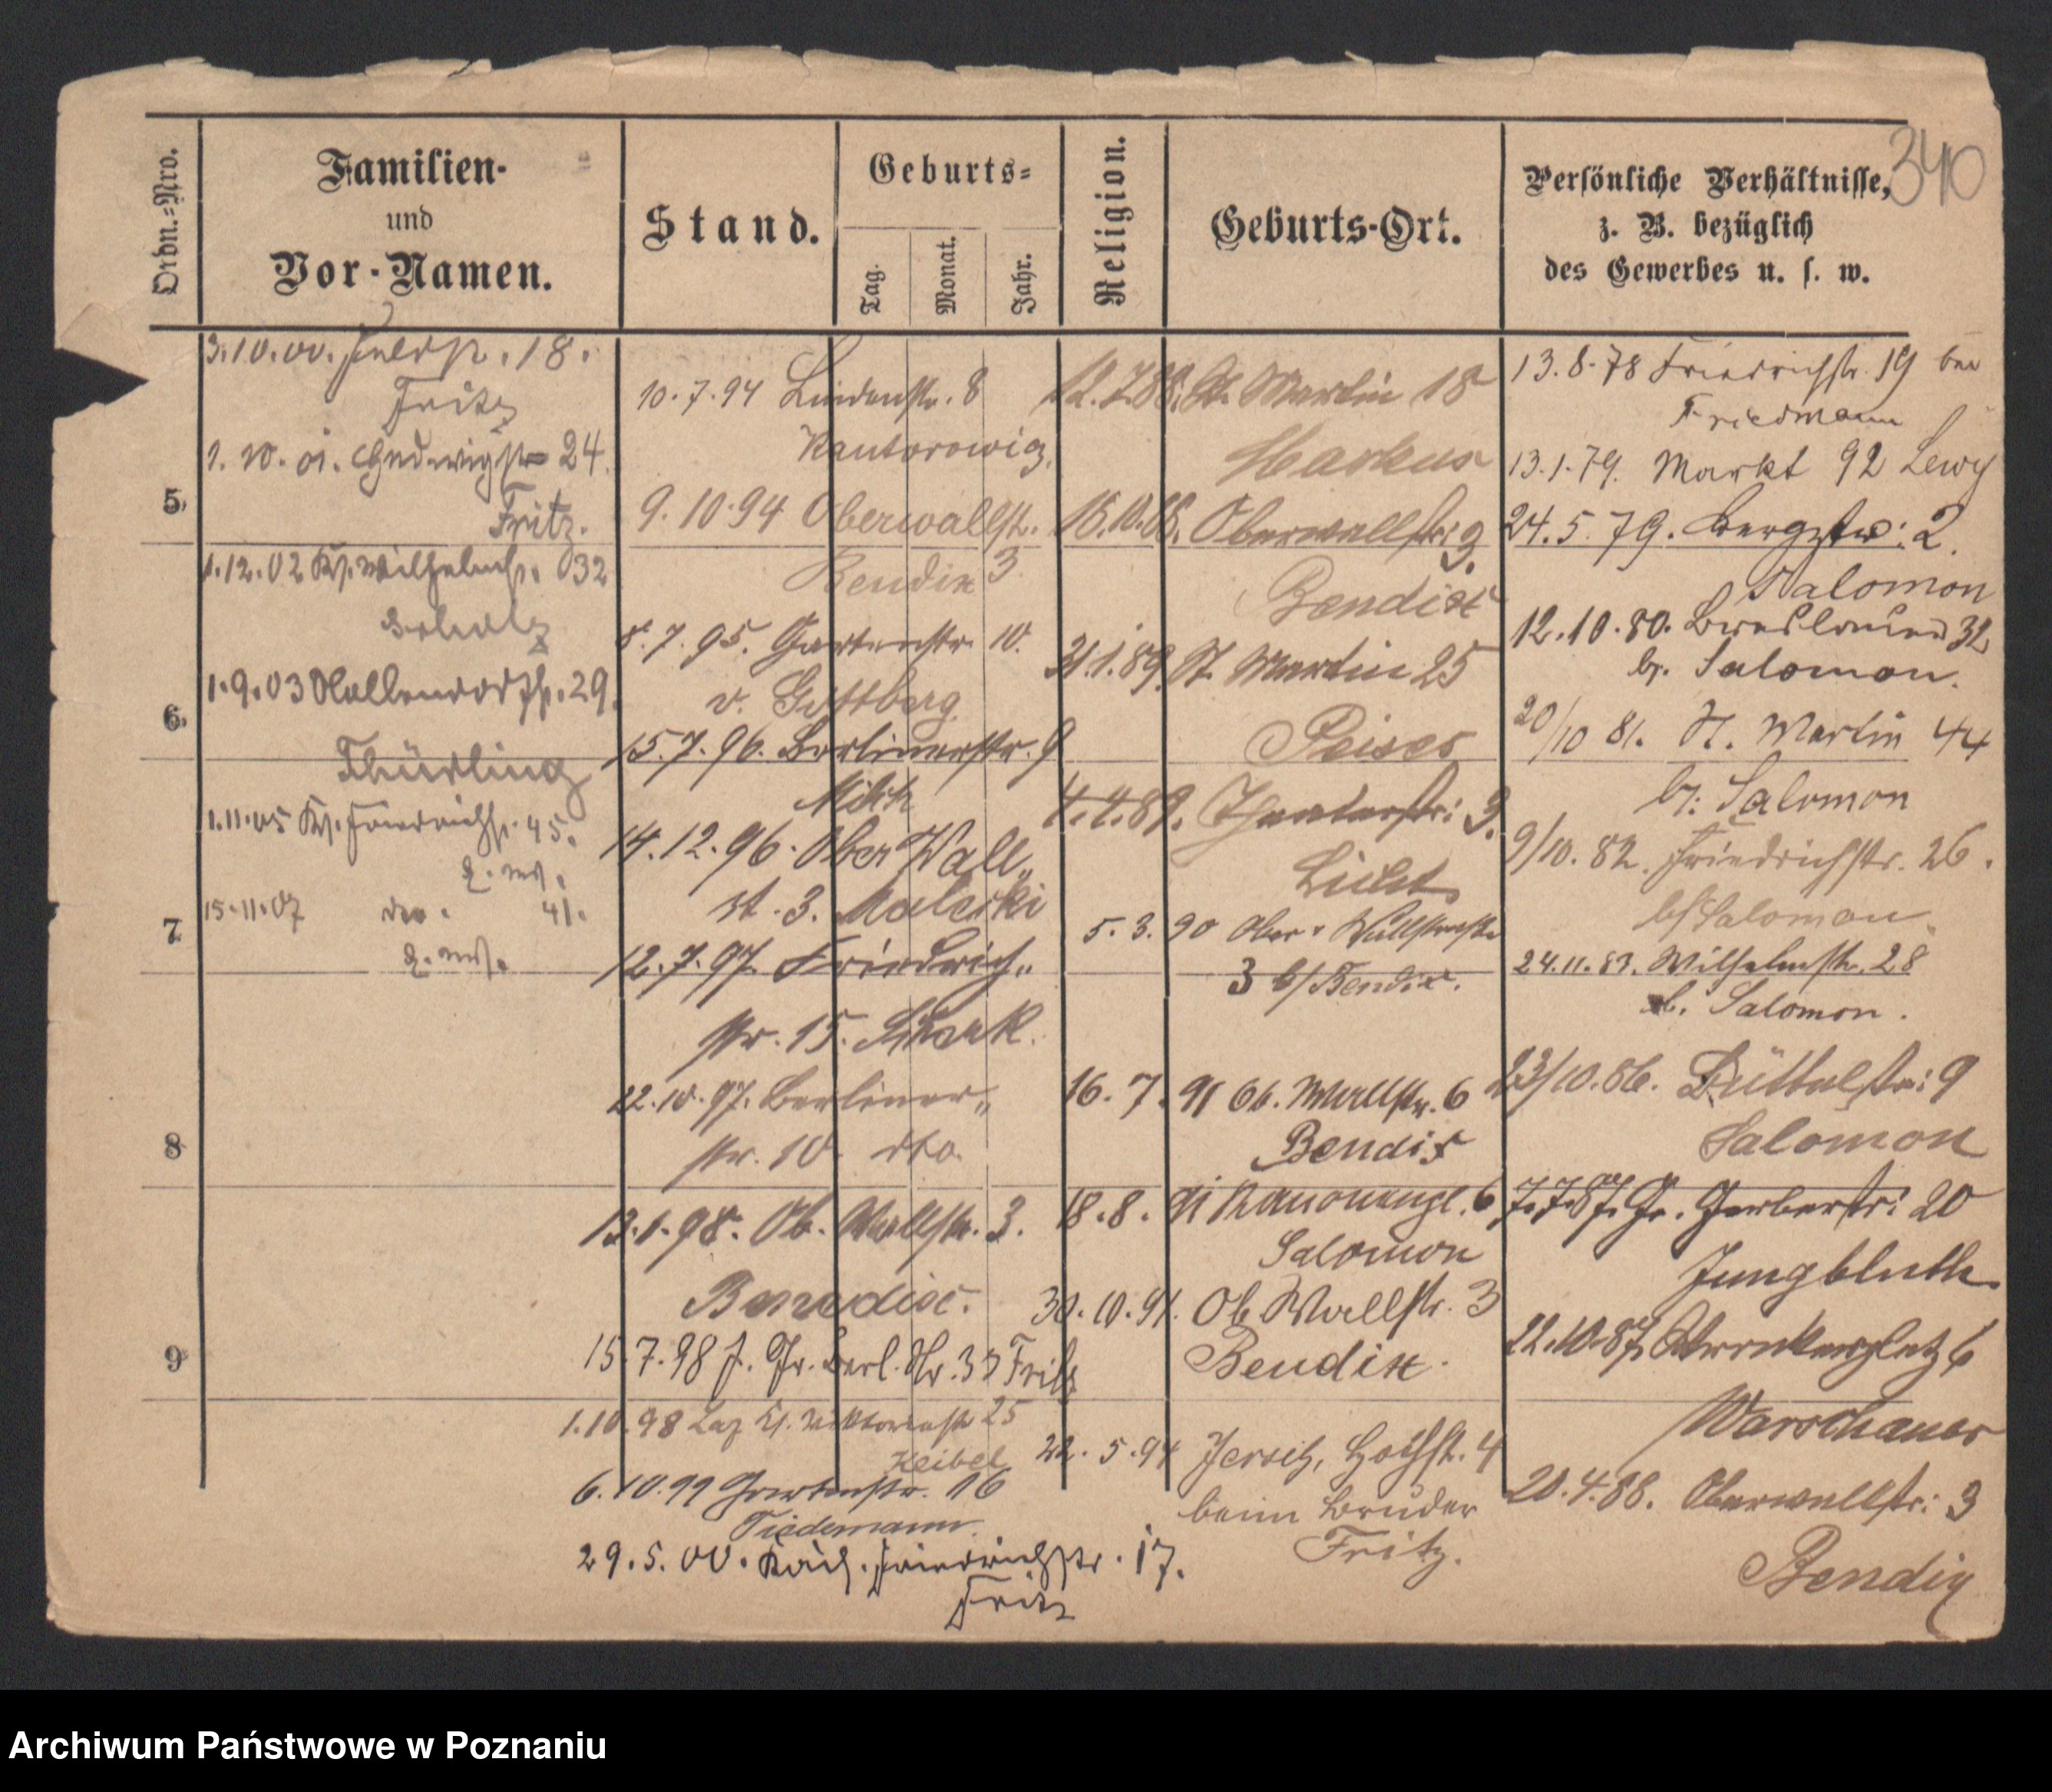 340
Ordn.-Nro.
Familien-
und
Vor-Namen.
Stand.
Geburts-
Tag.
Monat.
Jahr.
Religion.
Geburts-Ort.
Persönliche Verhältnisse,
z. B. bezüglich
des Gewerbes u. s. w.
5
6
7
8
9
3.10.00. 18.
Fritz
1. 10. 01. Hedwigstr 24.
Fritz.
1.12.02 Kp. Wilhelmstr. 32
Scholz
1.9.03 Hallendorffstr. 29.
Thürling
1.11.05 Kp. Friedrichstr. 45.
15.11.07 dto. 41.
10.7.94 Lindenstr. 8
Kantorowicz.
9.10.94 Oberwallstr.
Bendix 3
8.7.95. Gartenstr. 10.
v. Gottberg
15.7.96. Berlinerstr. 9
Milch
14.12.96. Ober Wall„
st. 3. Malecki
12.7.97. Friedrich„
str. 15.
22.10.97. Berliner„
str. 10 dto.
13.1.98. Ob. Wallstr. 3.
15.7.98 Gr. Berl. Str. 33 Fritz
1.10.98 Laz Viktoriastr 25
Keibel
6.10.99 Gartenstr. 16
Tiedemann.
29.5.00. Friedrichstr. 17.
Fritz
12.7.88. St. Martin 18
Markus
15.10.88. Oberwallstr: 3.
Bendix
31.1.89. St. Martin 25
Peiser
4.4.89. Theaterstr: 3.
Licht
5.3.90 Ober Wallstraße
3 b/Bendix.
16.7.91 Ob. Wallstr. 6
Bendix
18.8.91 Kanonenpl. 6
Salomon
30.10.91. Ob Wallstr. 3
Bendix.
22.5.94 Jersitz, Hochstr. 4
beim Bruder
Fritz.
13.8.78 Friedrichstr. 19 bei
Friedmann
13.1.79. Markt 92 Lewy
24.5.79. Bergstr: 2.
Salomon
12.10.80. Breslauer 32
b. Salomon.
20/10 81. St. Martin 44
b: Salomon
9/10.82. Friedrichstr. 26.
b/Salomon.
24.11.83. Wilhelmstr. 28
b. Salomon.
23/10.86. Büttelstr: 9
Salomon
7.7.87. Gr. Gerberstr: 20
Jungbluth
22.10.87. Wronkerplatz 6
Warschauer
20.4.88. Oberwallstr: 3
Bendix
Archiwum Państwowe w Poznaniu